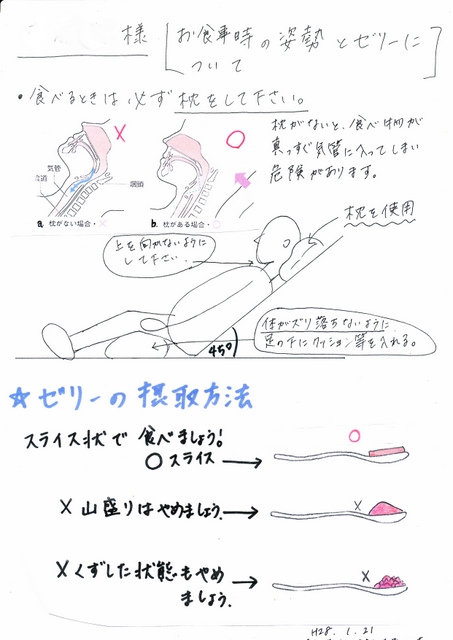 様 [お食事時の姿勢とゼリーに
ついて]
・食べるときは必ず枕をして下さい。
枕がないと、食べ物が
真っすぐ気管に入ってしまい
危険があります。
気管
食道
咽頭
a. 枕がない場合・×
b. 枕がある場合・○
枕を使用
上を向かないように
して下さい.
体がズリ落ちないように
足の下にクッション等を入れる。
45°
☆ゼリーの摂取方法
スライス状で 食べましょう!
○スライス
×山盛りはやめましょう.
×くずした状態もやめ
ましょう.
H28. 1. 21